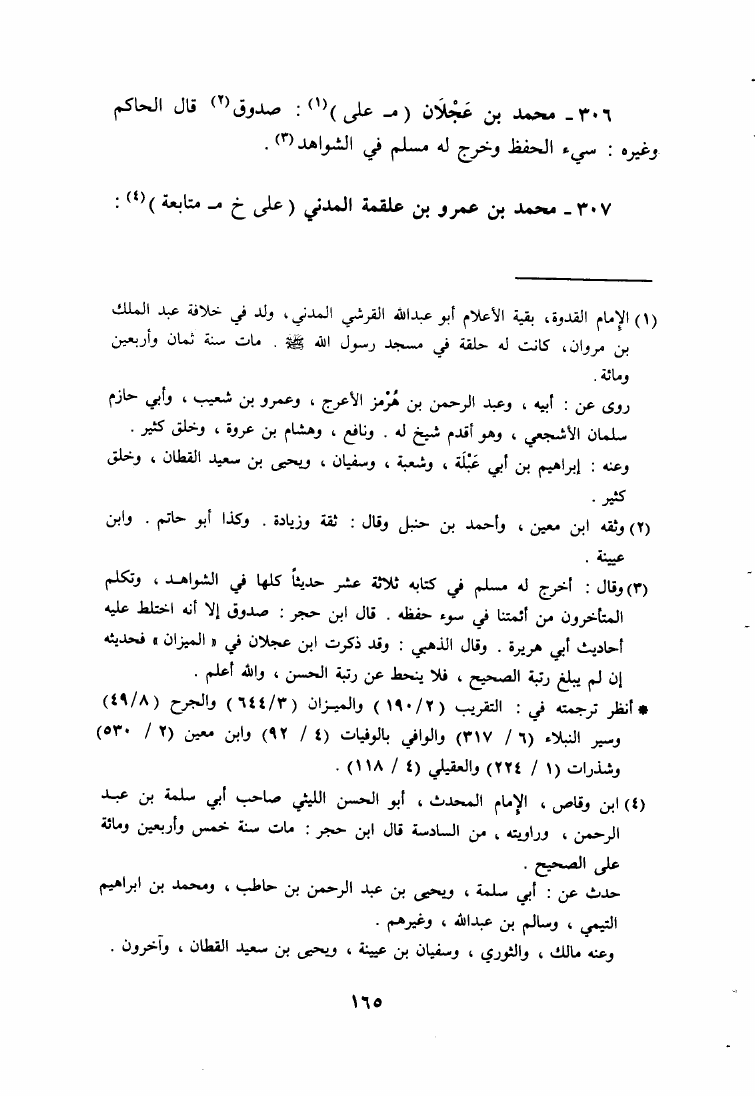 ٣٠٦ ـ محمد بن عَجْلَان ( مـ على )(١) : صدوق(٢) قال الحاكم
وغيره : سيء الحفظ وخرج له مسلم في الشواهد(٣) .
٣٠٧ ـ محمد بن عمرو بن علقمة المدني ( على خ مـ متابعة )(٤) :
(١) الإمام القدوة، بقية الأعلام أبو عبدالله القرشي المدني، ولد في خلافة عبد الملك
بن مروان، كانت له حلقة في مسجد رسول الله ﷺ . مات سنة ثمان وأربعين
ومائة .
روى عن : أبيه ، وعبد الرحمن بن هُرْمز الأعرج ، وعمرو بن شعيب ، وأبي حازم
سلمان الأشجعي ، وهو أقدم شيخ له . ونافع ، وهشام بن عروة ، وخلق كثير .
وعنه : إبراهيم بن أبي عَبْلَة ، وشعبة ، وسفيان ، ويحيى بن سعيد القطان ، وخلق
كثير .
(٢) وثقه ابن معين ، وأحمد بن حنبل وقال : ثقة وزيادة . وكذا أبو حاتم . وابن
عيينة .
(٣) وقال : أخرج له مسلم في كتابه ثلاثة عشر حديثاً كلها في الشواهد ، وتكلم
المتأخرون من أئمتنا في سوء حفظه . قال ابن حجر : صدوق إلا أنه اختلط عليه
أحاديث أبي هريرة . وقال الذهبي : وقد ذكرت ابن عجلان في « الميزان » فحديثه
إن لم يبلغ رتبة الصحيح ، فلا ينحط عن رتبة الحسن ، والله أعلم .
* أنظر ترجمته في : التقريب (٢/ ١٩٠) والميزان (٣/ ٦٤٤) والجرح (٨/ ٤٩)
وسير النبلاء (٦ / ٣١٧) والوافي بالوفيات (٤ / ٩٢) وابن معين (٢ / ٥٣٠)
وشذرات (١ / ٢٢٤) والعقيلي (٤ / ١١٨) .
(٤) ابن وقاص ، الإمام المحدث ، أبو الحسن الليثي صاحب أبي سلمة بن عبد
الرحمن ، وراويته ، من السادسة قال ابن حجر : مات سنة خمس وأربعين ومائة
على الصحيح .
حدث عن : أبي سلمة ، ويحيى بن عبد الرحمن بن حاطب ، ومحمد بن ابراهيم
التيمي ، وسالم بن عبدالله ، وغيرهم .
وعنه مالك ، والثوري ، وسفيان بن عيينة ، ويحيى بن سعيد القطان ، وآخرون .
١٦٥